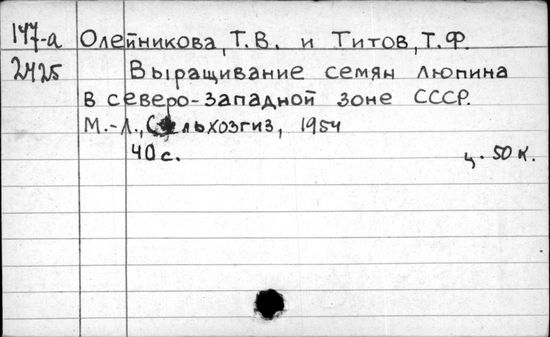 147-а Олейникова, Т.В. и Титов, Т.Ф.
2425 Выращивание семян люпина
в северо-западной зоне СССР.
М.-Л., Сельхозгиз, 1954
40 с. ц. 50 к.